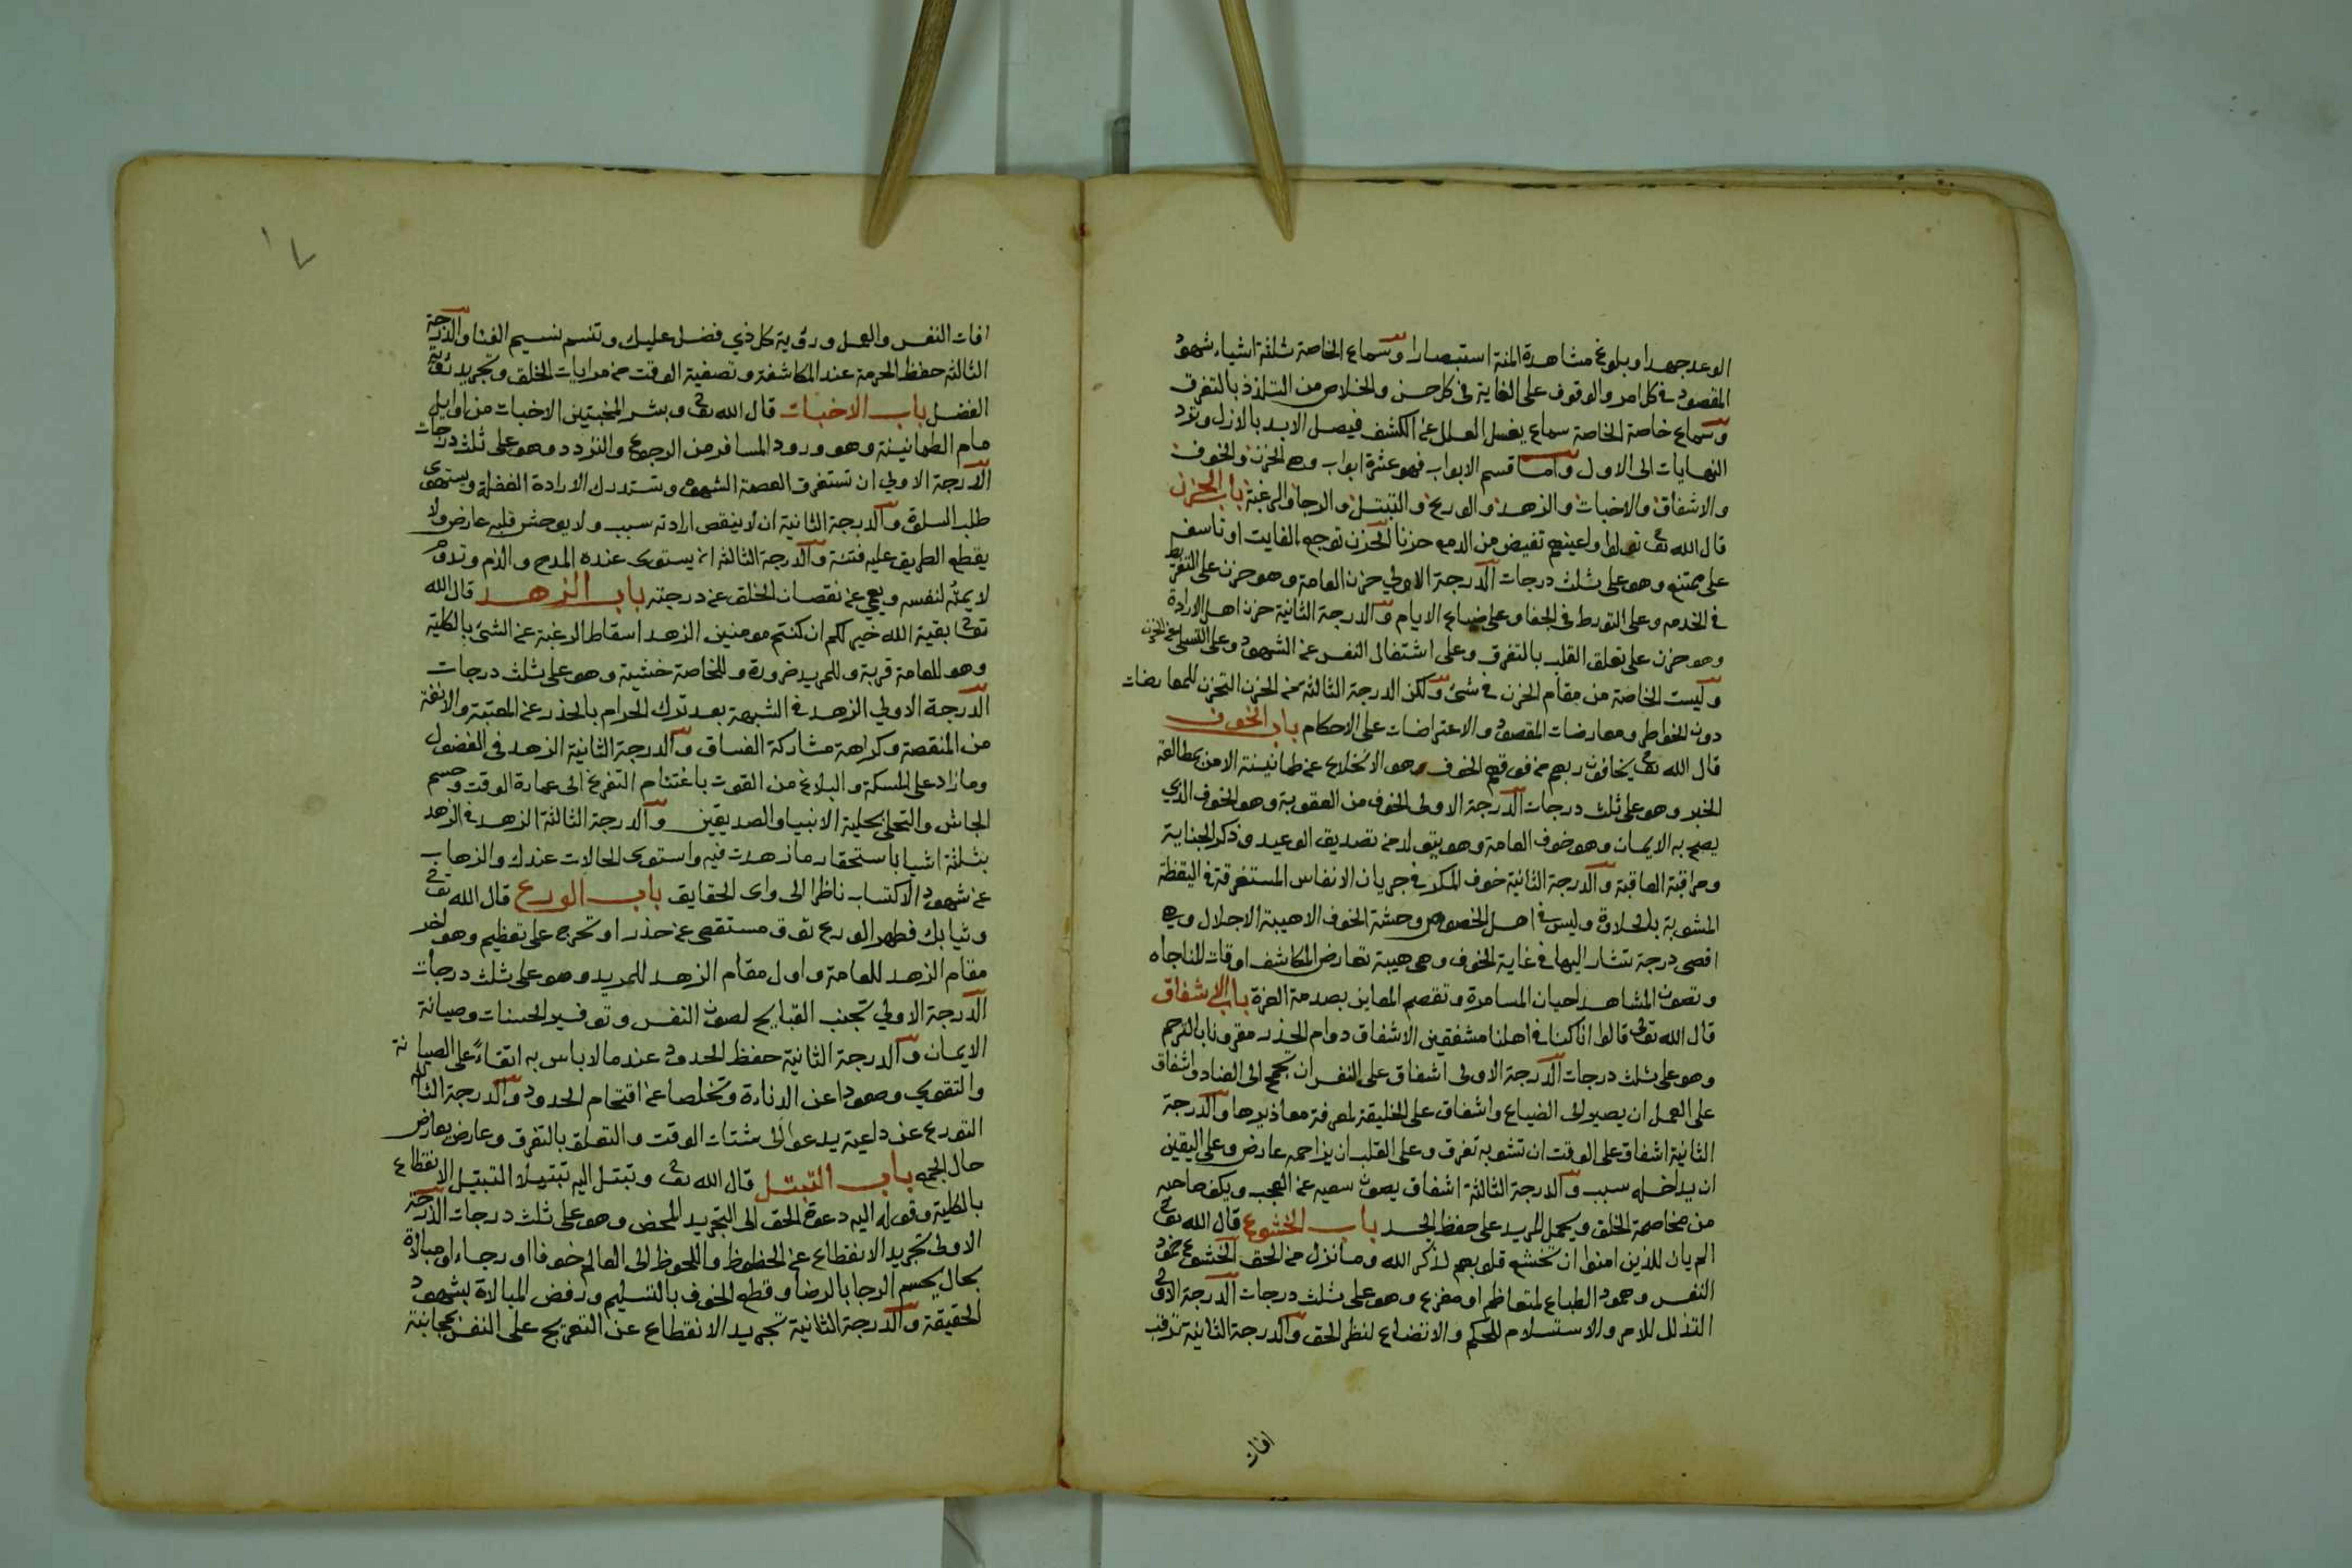 الوعد جهدا وبلوغ مشاهدة المنة استبصارا وسماع الخاصة ثلثة اشياء شهود
المقصود في كل امر والوقوف على الغاية في كل حسن والخلاص من التلذذ بالتفرق
وسماع خاصة الخاصة سماع يغسل العلل عن الكشف فيصل الابد بالازل وترد
النهايات الى الاول واما قسم الابواب فهو عشرة ابواب وهي الحزن والخوف
والاشفاق والاخبات والزهد والورع والتبتل والرجا والرغبة باب الحزن
قال الله تعالى تولوا واعينهم تفيض من الدمع حزنا الحزن توجع لفايت او تاسف
على ممتنع وهو على ثلث درجات الدرجة الاولي حزن العامة وهو حزن على التفريط
في الخدمه وعلى التورط في الجفا وعلى ضياع الايام والدرجة الثانية حزن اهل الارادة
وهو حزن على تعلق القلب بالتفرق وعلى اشتغال النفس عن الشهود وعلى التسلي عن الحزن
وليست الخاصة من مقام الحزن في شئ ولكن الدرجة الثالثة من الحزن التحزن للمعارضات
دون الخواطر ومعارضات المقصود والاعتراضات على الاحكام باب الخوف
قال الله تعالى يخافون ربهم من فوقهم الخوف وهو الانخلاع عن طمانينة الامن بمطالعة
الخبر وهو على ثلث درجات الدرجة الاولى الخوف من العقوبة وهو الخوف الذي
يصح به الايمان وهو خوف العامة وهو يتولد من تصديق الوعيد وذكر الجناية
ومراقبة العاقبة والدرجة الثانية خوف المكر في جريان الانفاس المستغرقة في اليقظة
المشوبة بالحلاوة وليس في اهل الخصوص وحشة الخوف الا هيبة الاجلال وهي
اقصى درجة يشار اليها في غاية الخوف وهي هيبة تعارض المكاشف اوقات المناجاه
وتصون المشاهد احيان المسامرة وتقصم المعاين بصدمة العزة باب الاشفاق
قال الله تعالى قالوا انا كنا في اهلنا مشفقين الاشفاق دوام الحذر مقرونا بالترحم
وهو على ثلث درجات الدرجة الاولى اشفاق على النفس ان تجمح الى العناد واشفاق
على العمل ان يصير الى الضياع واشفاق على الخليقة لمعرفة معاذيرها والدرجة
الثانية اشفاق على الوقت ان تشوبه تفرق وعلى القلب ان يزاحمه عارض وعلى اليقين
ان يداخله سبب والدرجة الثالثة اشفاق يصون سعيه عن العجب ويكف صاحبه
من مخاصمة الخلق ويحمل المريد على حفظ الحد باب الخشوع قال الله تعالى
الم يان للذين امنوا ان تخشع قلوبهم لذكر الله وما نزل من الحق الخشوع خمود
النفس وهمود الطباع لمتعاظم او مفزع وهو على ثلث درجات الدرجة الاولى
التذلل للامر والاستسلام للحكم والاتضاع لنظر الحق والدرجة الثانية ترقب
افات
افات النفس والعمل ورؤية كل ذي فضل عليك وتنسم نسيم الفنا والدرجة
الثالثة حفظ الحرمة عند المكاشفة وتصفية الوقت من مرايات الخلق وتجريد رؤية
الفضل باب الاخبات قال الله تعالى وبشر المخبتين الاخبات من اوايل
مام الطمانينة وهو ورود المسافر من الرجوع والتردد وهو على ثلث درجات
الدرجة الاولي ان تستغرق العصمة الشهوة وتستدرك الارادة الغفلة ويستهوى
طلب السلوة والدرجة الثانية ان لا ينقص ارادته سبب ولا يوحش قلبه عارض ولا
يقطع الطريق عليه فتنة والدرجة الثالثة ان يستوى عنده المدح والذم وتدوم
لايمته لنفسه ويعمي عن نقصان الخلق عن درجته باب الزهد قال الله
تعالى بقية الله خير لكم ان كنتم مومنين الزهد اسقاط الرغبة عن الشئ بالكلية
وهو للعامة قربة وللمريد ضرورة وللخاصة خشية وهو على ثلث درجات
الدرجة الاولي الزهد في الشبهة بعد ترك الحرام بالحذر عن المعتبة والانفة
من المنقصة وكراهة مشاركة الفساق والدرجة الثانية الزهد في الفضول
وما زاد على المسكة والبلاغ من القوت باغتنام التفرغ الى عمارة الوقت وحسم
الجاش والتحلي بحلية الانبيا والصديقين والدرجة الثالثة الزهد في الزهد
بثلثة اشيا باستحقار ما زهدت فيه واستوى الحالات عندك والذهاب
عن شهود الاكتساب ناظرا الى وادى الحقايق باب الورع قال الله تعالى
وثيابك فطهر الورع توق مستقصى عن حذر او تحرج على تعظيم وهو اخر
مقام الزهد للعامة واول مقام الزهد للمريد وهو على ثلث درجات
الدرجة الاولي تجنب القبايح لصون النفس وتوفير الحسنات وصيانة
الايمان والدرجة الثانية حفظ الحدود عند مالا باس به اتقاءً على الصيانة
والتقوي وصعودا عن الدناءة وتخلصا عن اقتحام الحدود والدرجة الثالثة
التورع عن داعية يدعوا الى شتات الوقت والتعلق بالتفرق وعارض يعارض
حال الجمع باب التبتل قال الله تعالى وتبتل اليه تبتيلا التبتيل الانقطاع
بالكلية وقوله اليه دعوة الحق الى التجريد المحض وهو على ثلث درجات الدرجة
الاولى تجريد الانقطاع عن الحظوظ واللحوظ الى العالم خوفا او رجاء او مبالاة
بحال يحسم الرجا بالرضا وقطع الخوف بالتسليم ورفض المبالاة بشهود
الحقيقة والدرجة الثانية تجريد الانقطاع عن التعريج على النفس بمجانبة